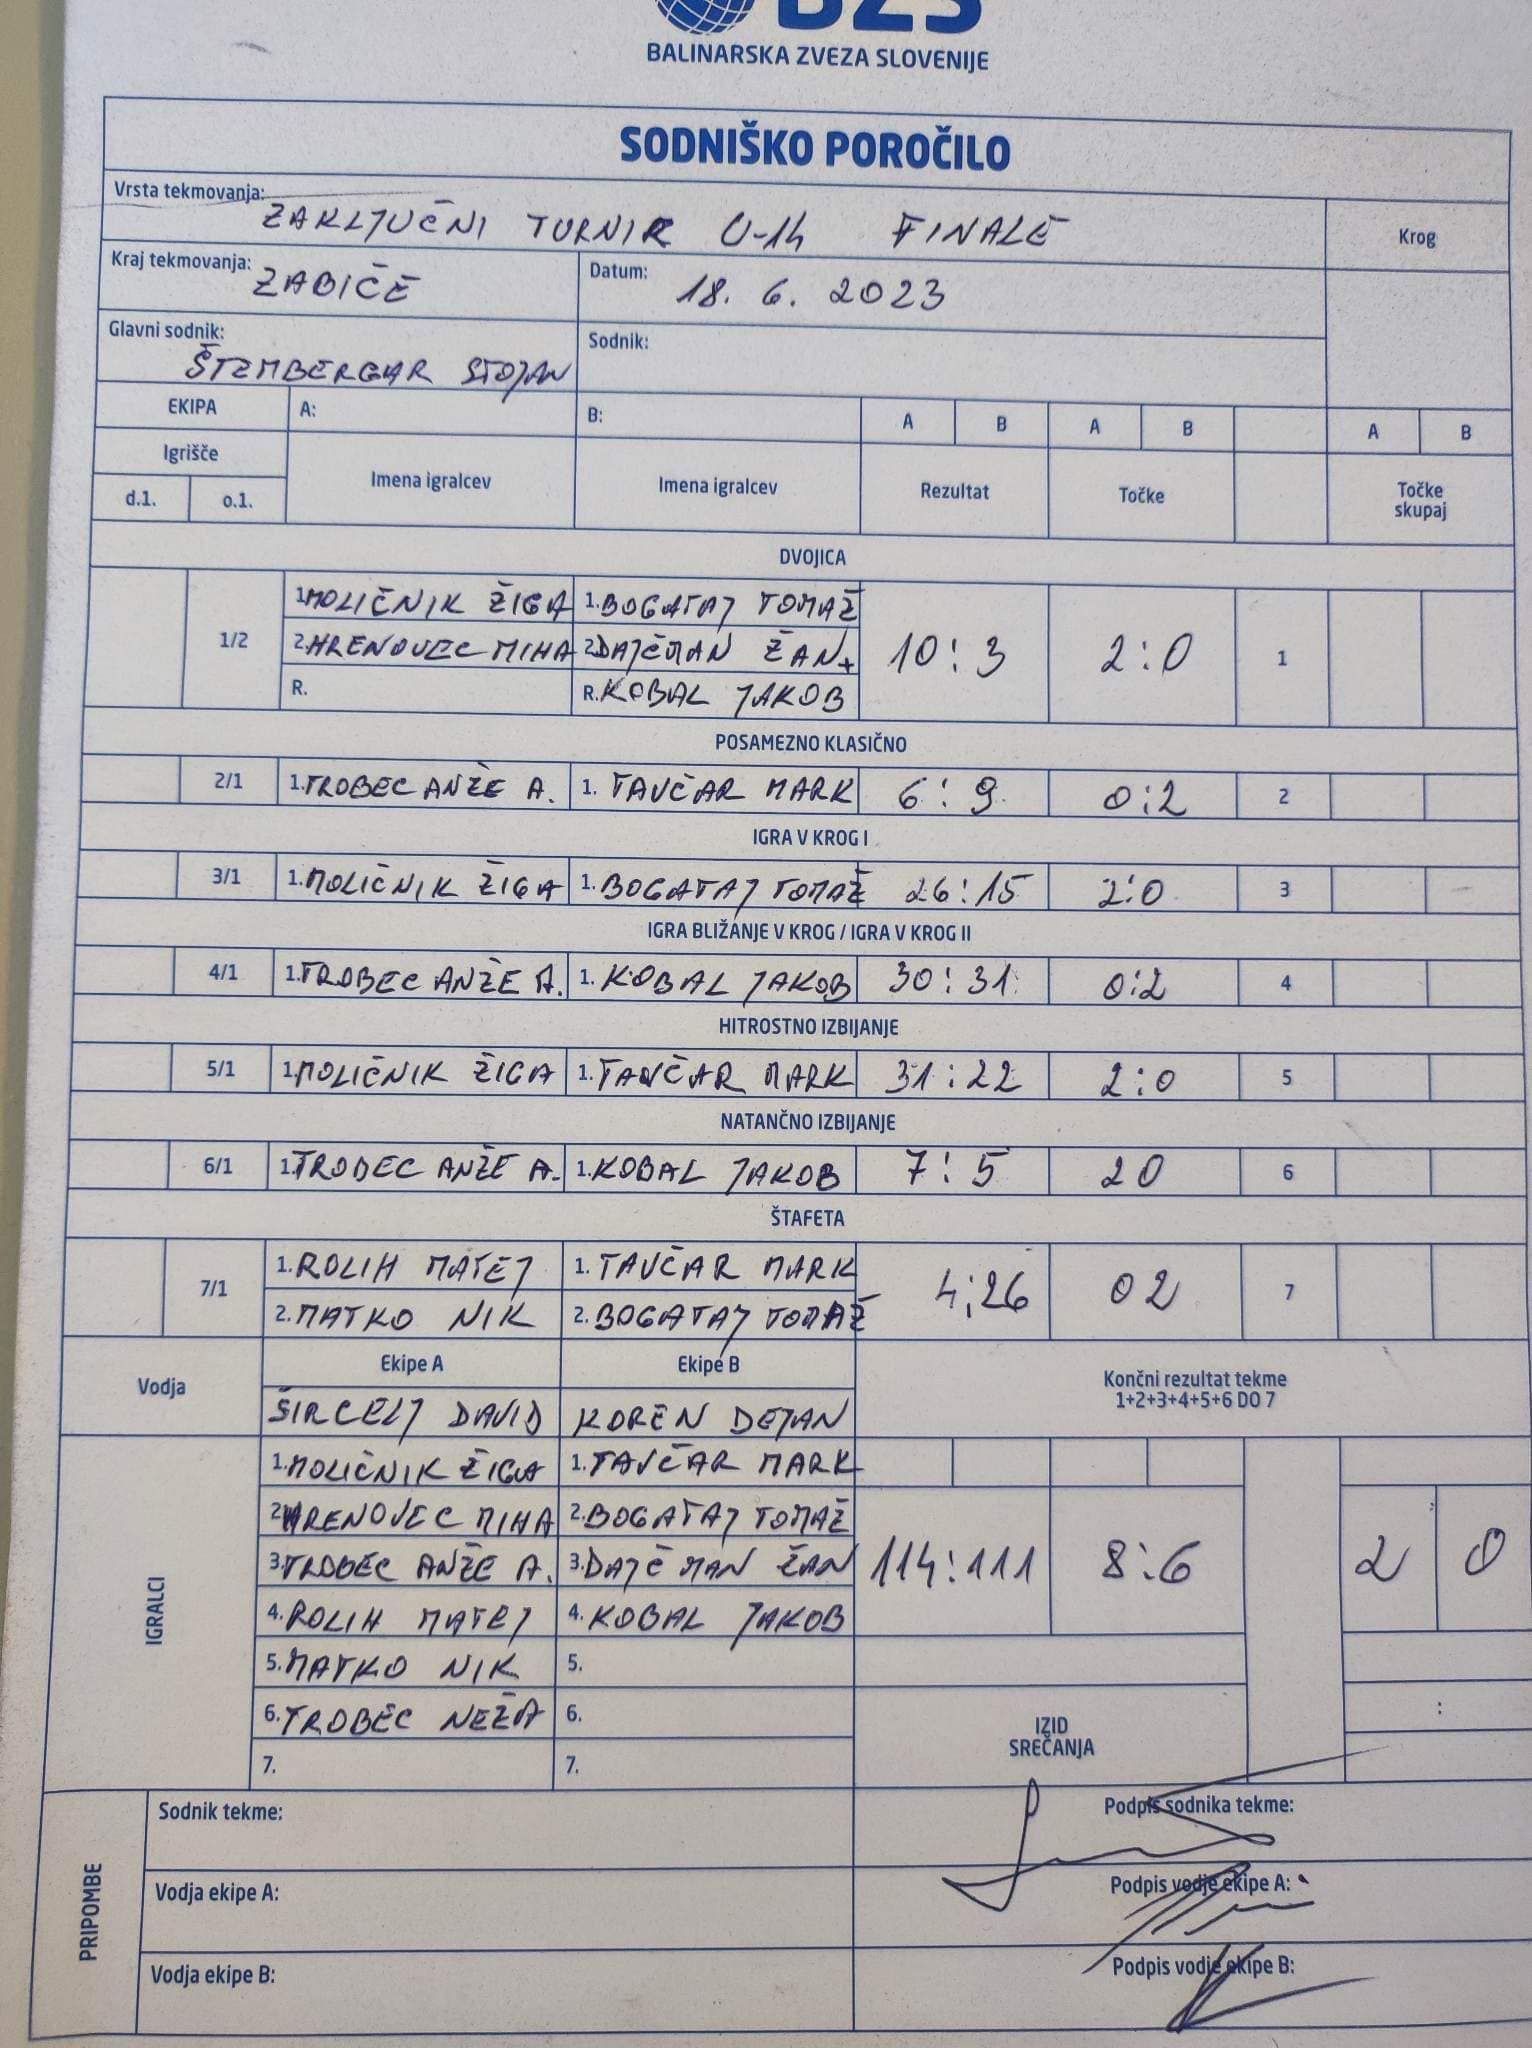 BZS
BALINARSKA ZVEZA SLOVENIJE
SODNIŠKO POROČILO
Vrsta tekmovanja: ZAKLJUČNI TURNIR U-14 FINALE
Krog
Kraj tekmovanja: ZABIČE Datum: 18. 6. 2023
Glavni sodnik: ŠTEMBERGAR STOJAN Sodnik:
EKIPA A: B: A B A B A B
Igrišče
d.1. o.1. Imena igralcev Imena igralcev Rezultat Točke Točke skupaj
DVOJICA
1. MOLIČNIK ŽIGA 1. BOGATAJ TOMAŽ
1/2 2. HRENOVEC MIHA 2. DAJČMAN ŽAN+ 10:3 2:0 1
R. R. KOBAL JAKOB
POSAMEZNO KLASIČNO
2/1 1. TROBEC ANŽE A. 1. TAVČAR MARK 6:9 0:2 2
IGRA V KROG I
3/1 1. MOLIČNIK ŽIGA 1. BOGATAJ TOMAŽ 26:15 2:0 3
IGRA BLIŽANJE V KROG / IGRA V KROG II
4/1 1. TROBEC ANŽE A. 1. KOBAL JAKOB 30:31 0:2 4
HITROSTNO IZBIJANJE
5/1 1. MOLIČNIK ŽIGA 1. TAVČAR MARK 31:22 2:0 5
NATANČNO IZBIJANJE
6/1 1. TROBEC ANŽE A. 1. KOBAL JAKOB 7:5 20 6
ŠTAFETA
1. ROLIH MATEJ 1. TAVČAR MARK
7/1 4:26 02 7
2. MATKO NIK 2. BOGATAJ TOMAŽ
Vodja Ekipe A Ekipe B Končni rezultat tekme
1+2+3+4+5+6 DO 7
ŠIRCELJ DAVID KOREN DEJAN
IGRALCI
1. MOLIČNIK ŽIGA 1. TAVČAR MARK
2. HRENOVEC MIHA 2. BOGATAJ TOMAŽ
3. TROBEC ANŽE A. 3. DAJČMAN ŽAN 114:111 8:6 2 0
4. ROLIH MATEJ 4. KOBAL JAKOB
5. MATKO NIK 5.
6. TROBEC NEŽA 6. :
IZID
SREČANJA
7. 7.
PRIPOMBE
Sodnik tekme: Podpis sodnika tekme:
Vodja ekipe A: Podpis vodje ekipe A:
Vodja ekipe B: Podpis vodje ekipe B: